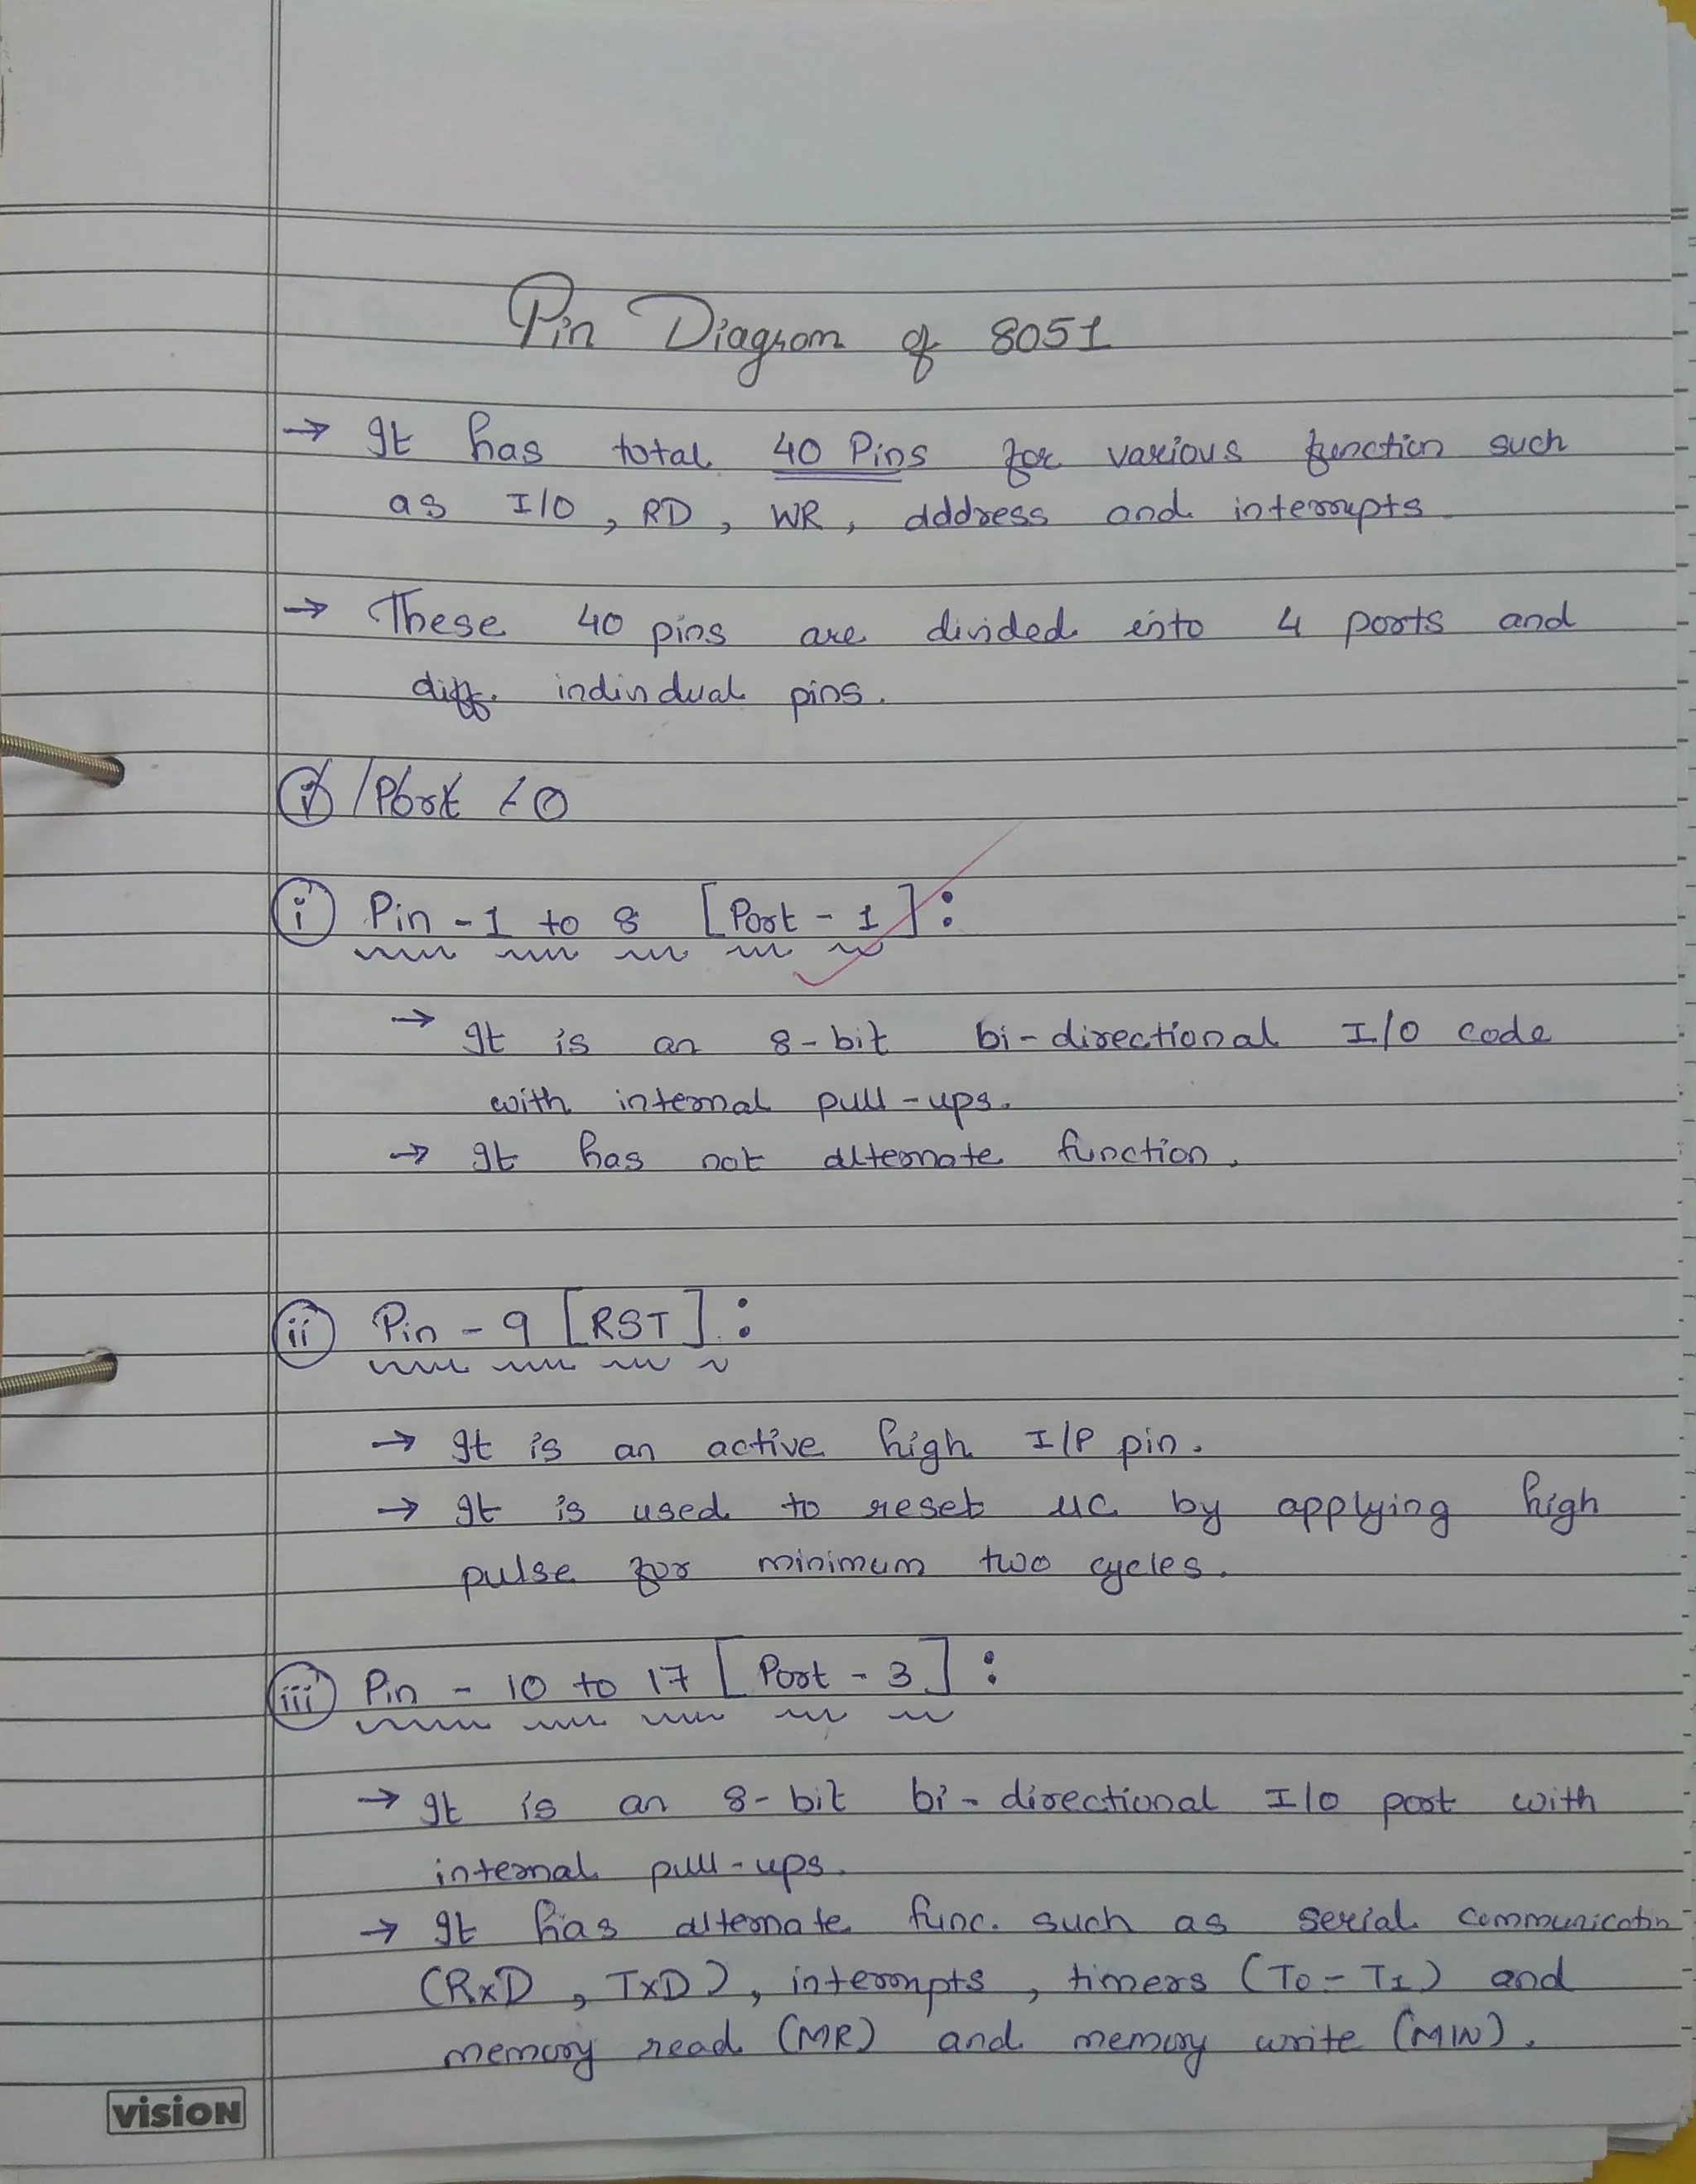 Pin Diagram of 8051
→ It has total 40 Pins for various function such
as I/O , RD , WR , address and interrupts
→ These 40 pins are divided into 4 ports and
diff. indivdual pins.
i) Port - 0
i Pin - 1 to 8 [Port - 1] :
→ It is an 8-bit bi-directional I/O code
with internal pull-ups.
→ It has not alternate function.
ii Pin - 9 [RST] :
→ It is an active high I/P pin.
→ It is used to reset uC by applying high
pulse for minimum two cycles.
iii Pin - 10 to 17 [Port - 3] :
→ It is an 8-bit bi-directional I/O port with
internal pull-ups.
→ It has alternate func. such as serial communicatin
(RxD , TxD), interrupts , timers (T0 - T1) and
memory read (MR) and memory write (MIN).
vision